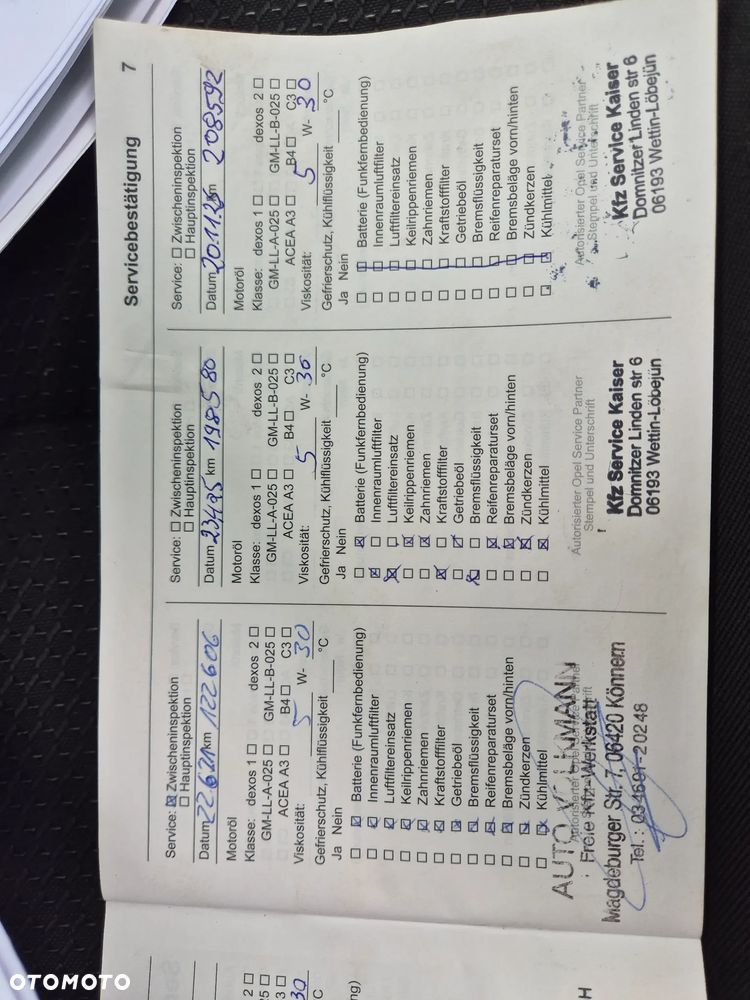 Servicebestätigung 7
Service: ☒ Zwischeninspektion
☐ Hauptinspektion
Datum 22.6.21 km 122606
Motoröl
Klasse: dexos 1 ☐ dexos 2 ☐
GM-LL-A-025 ☐ GM-LL-B-025 ☐
ACEA A3 ☐ B4 ☐ C3 ☐
Viskosität: 5 W- 30
Gefrierschutz, Kühlflüssigkeit °C
Ja Nein
☐ ☒ Batterie (Funkfernbedienung)
☐ ☒ Innenraumluftfilter
☐ ☒ Luftfiltereinsatz
☐ ☒ Keilrippenriemen
☐ ☒ Zahnriemen
☐ ☒ Kraftstofffilter
☐ ☒ Getriebeöl
☐ ☒ Bremsflüssigkeit
☐ ☒ Reifenreparaturset
☐ ☒ Bremsbeläge vorn/hinten
☐ ☒ Zündkerzen
☐ ☒ Kühlmittel
Autorisierter Opel Service Partner
AUTO VOLKMANN
Freie Kfz-Werkstatt
Magdeburger Str. 7, 06420 Könnern
Tel.: 034691-20248
Service: ☐ Zwischeninspektion
☐ Hauptinspektion
Datum 23.4.25 km 198580
Motoröl
Klasse: dexos 1 ☐ dexos 2 ☐
GM-LL-A-025 ☐ GM-LL-B-025 ☐
ACEA A3 ☐ B4 ☐ C3 ☐
Viskosität: 5 W- 30
Gefrierschutz, Kühlflüssigkeit °C
Ja Nein
☐ ☒ Batterie (Funkfernbedienung)
☒ ☐ Innenraumluftfilter
☒ ☐ Luftfiltereinsatz
☐ ☒ Keilrippenriemen
☐ ☒ Zahnriemen
☒ ☐ Kraftstofffilter
☐ ☒ Getriebeöl
☒ ☐ Bremsflüssigkeit
☐ ☒ Reifenreparaturset
☐ ☒ Bremsbeläge vorn/hinten
☐ ☒ Zündkerzen
☐ ☒ Kühlmittel
Autorisierter Opel Service Partner
Stempel und Unterschrift
Kfz Service Kaiser
Domnitzer Linden str 6
06193 Wettin-Löbejün
Service: ☐ Zwischeninspektion
☐ Hauptinspektion
Datum 20.11.25 km 208592
Motoröl
Klasse: dexos 1 ☐ dexos 2 ☐
GM-LL-A-025 ☐ GM-LL-B-025 ☐
ACEA A3 ☐ B4 ☐ C3 ☐
Viskosität: 5 W- 30
Gefrierschutz, Kühlflüssigkeit °C
Ja Nein
☐ ☒ Batterie (Funkfernbedienung)
☐ ☐ Innenraumluftfilter
☐ ☐ Luftfiltereinsatz
☐ ☐ Keilrippenriemen
☐ ☐ Zahnriemen
☐ ☐ Kraftstofffilter
☐ ☐ Getriebeöl
☐ ☐ Bremsflüssigkeit
☐ ☐ Reifenreparaturset
☐ ☐ Bremsbeläge vorn/hinten
☐ ☐ Zündkerzen
☐ ☒ Kühlmittel
Autorisierter Opel Service Partner
Stempel und Unterschrift
Kfz Service Kaiser
Domnitzer Linden str 6
06193 Wettin-Löbejün
2 ☐
30
°C
ng)
H
OTOMOTO